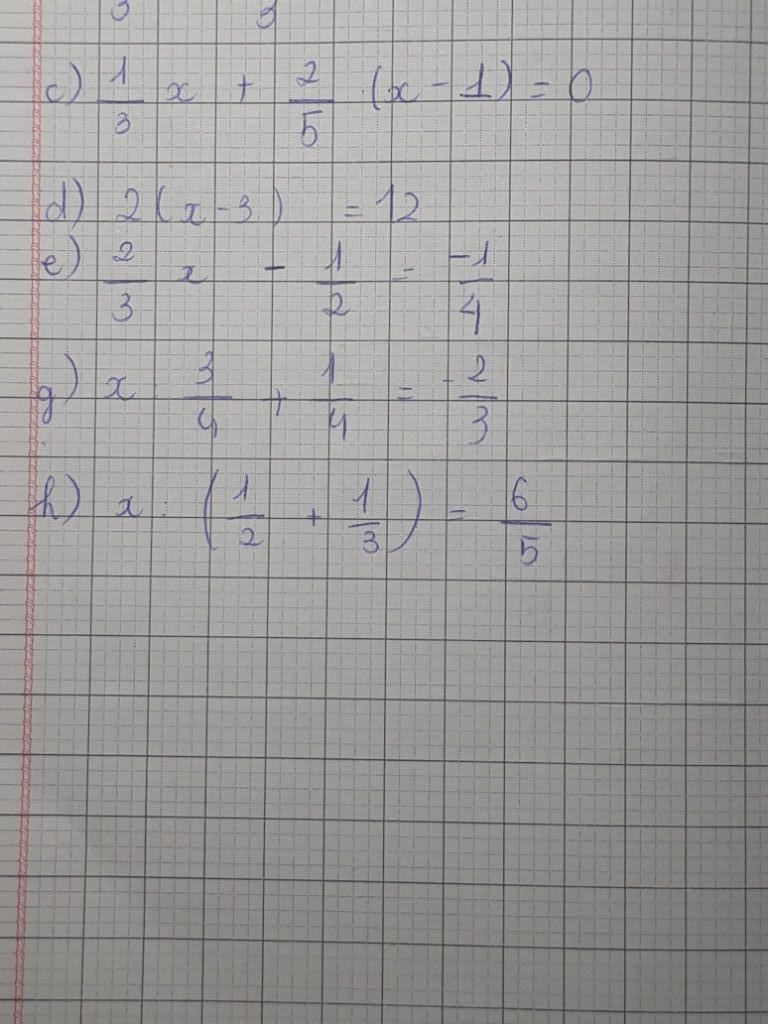 c) 1/3 x + 2/5 · (x - 1) = 0
d) 2(x-3) = 12
e) 2/3 x - 1/2 = -1/4
g) x · 3/4 + 1/4 = -2/3
h) x : (1/2 + 1/3) = 6/5